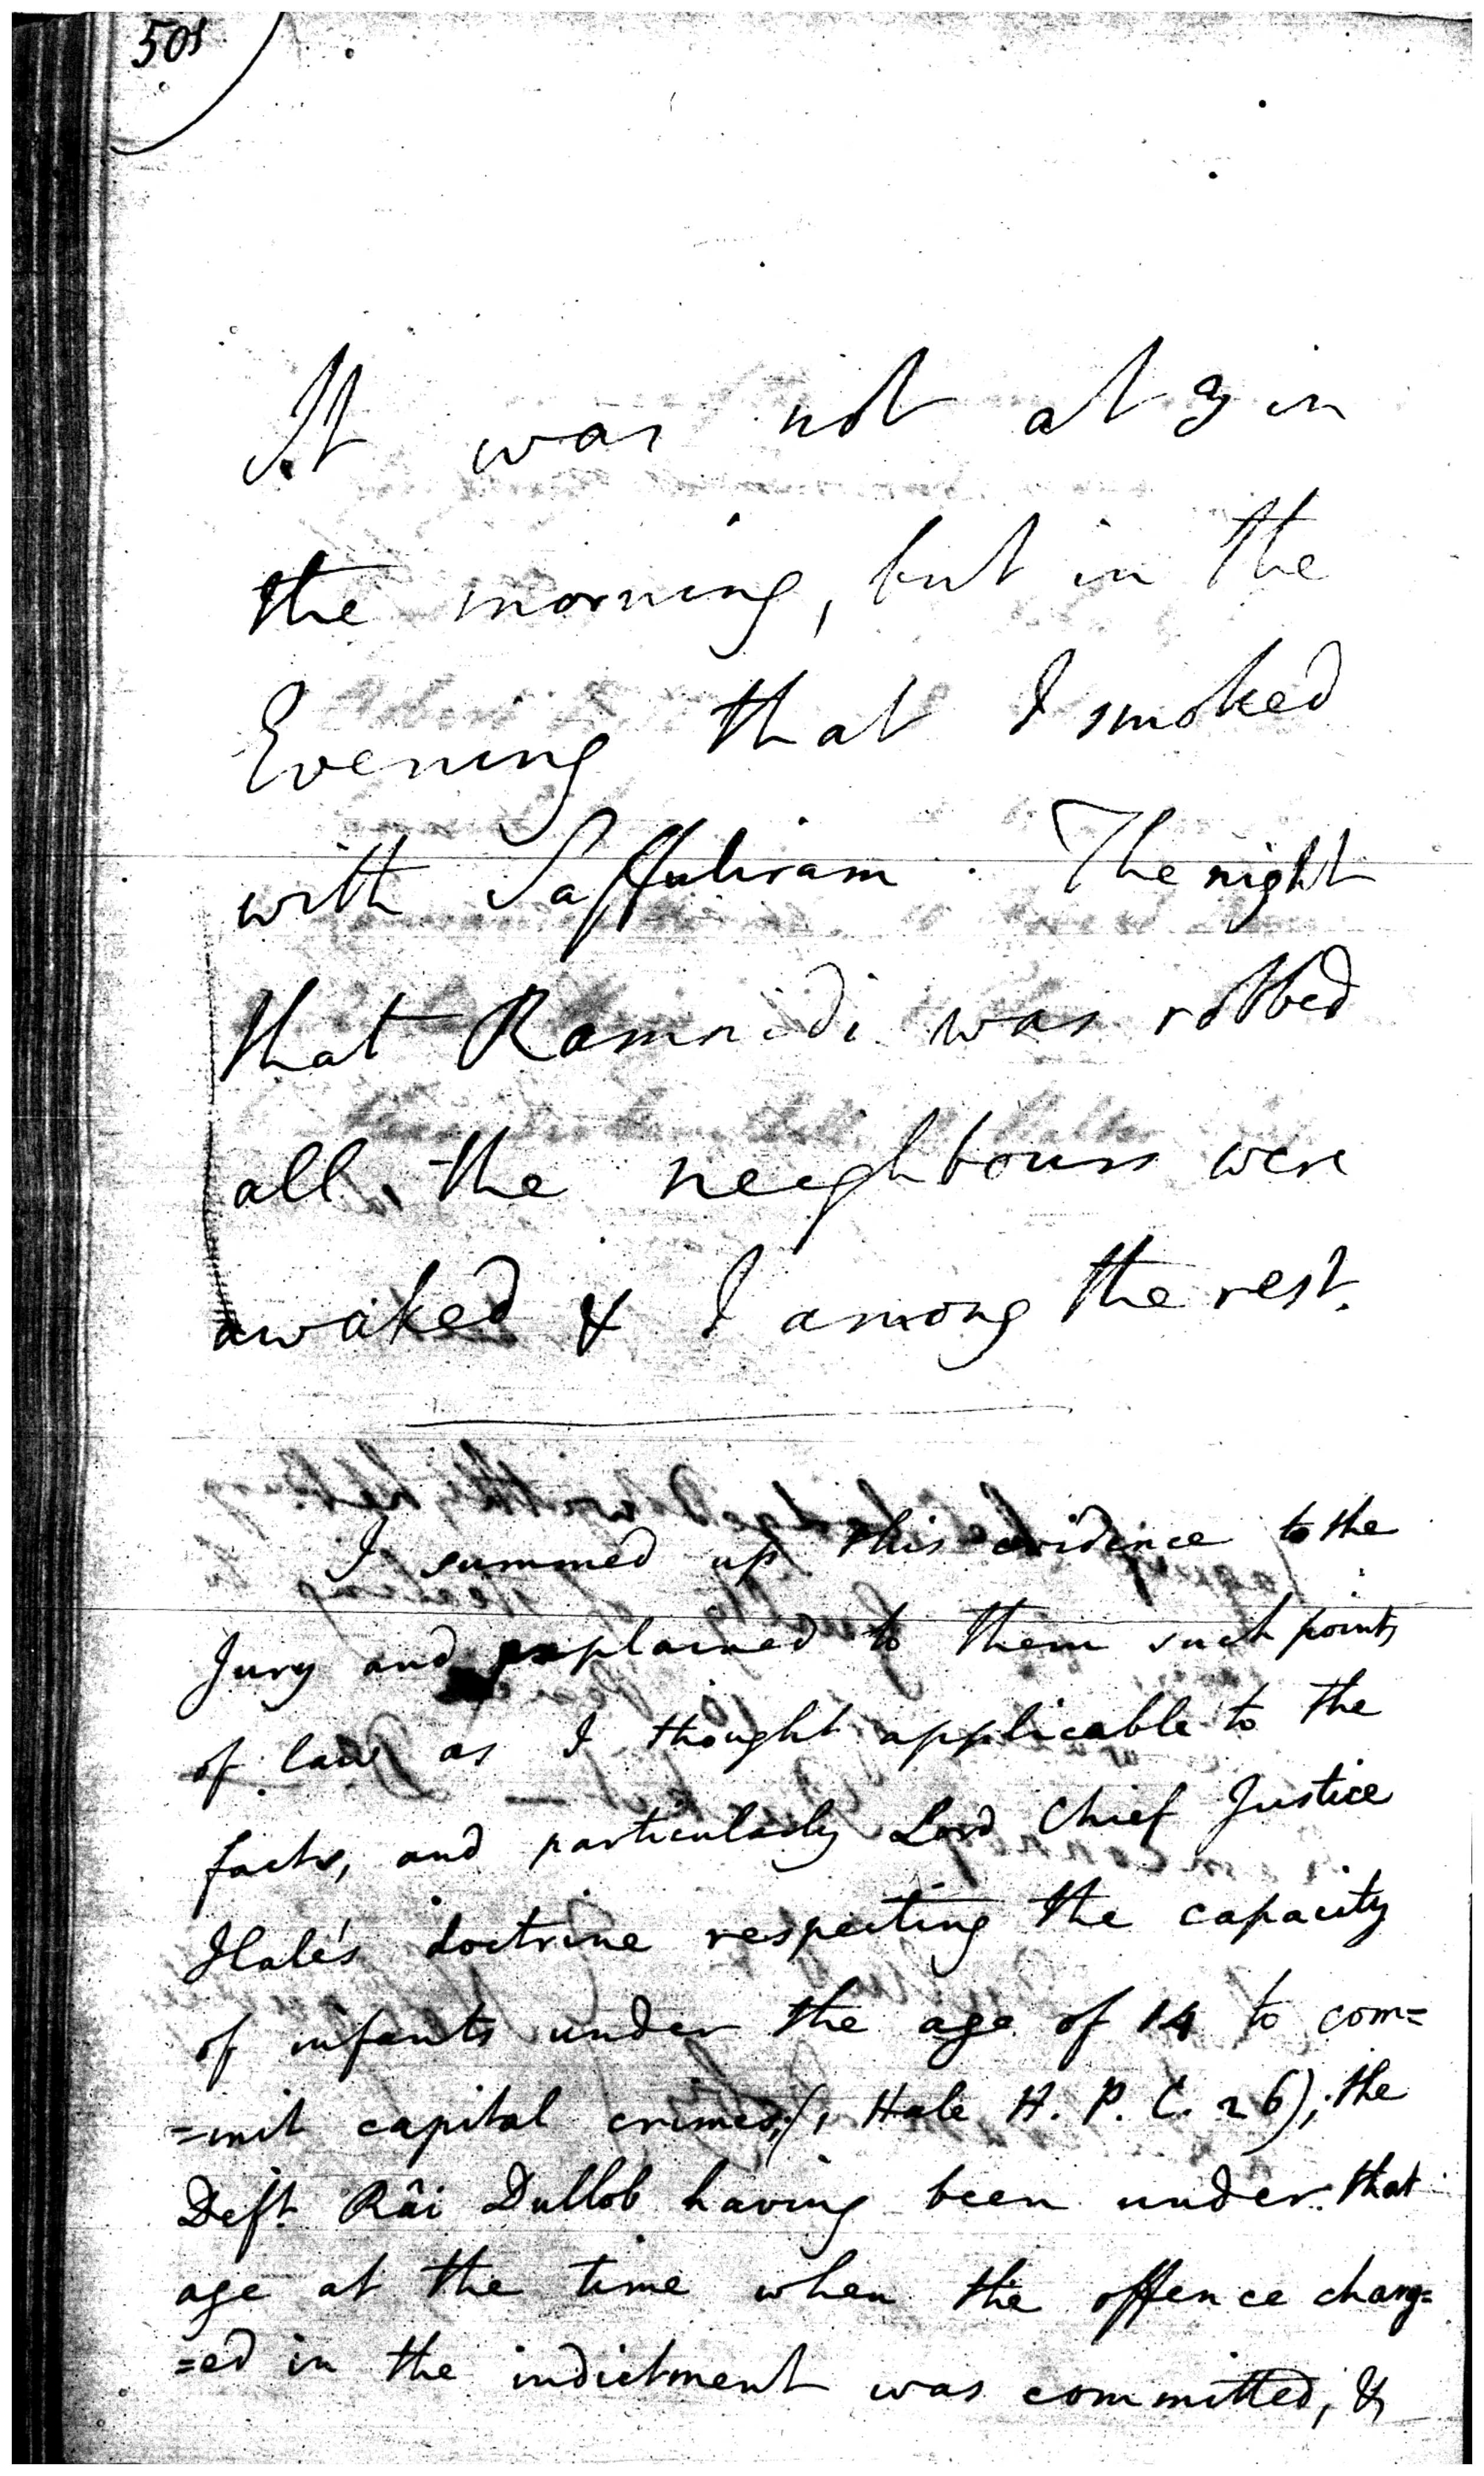 501
It was not at 3 in
the morning, but in the
Evening that I smoked
with Saffuliram. The night
that Ramnidi was robbed
all the neighbours were
awaked & I among the rest.
I summed up this evidence to the
Jury and explained to them such points
of law as I thought applicable to the
facts, and particularly Lord Chief Justice
Hale's doctrine respecting the capacity
of infants under the age of 14 to com=
=mit capital crimes, (1 Hale H. P. C. 26); the
Deft. Râi Dullob having been under that
age at the time when the offence charg=
=ed in the indictment was committed, &